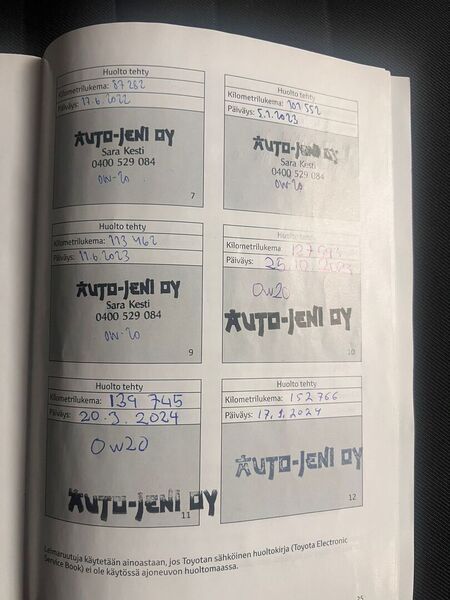 Huolto tehty
Kilometrilukema: 87 282
Päiväys: 17.6.2022
AUTO-JENI OY
Sara Kesti
0400 529 084
0W-20
7
Huolto tehty
Kilometrilukema: 101 552
Päiväys: 5.1.2023
AUTO-JENI OY
Sara Kesti
0400 529 084
0W-20
Huolto tehty
Kilometrilukema: 113 462
Päiväys: 11.6.2023
AUTO-JENI OY
Sara Kesti
0400 529 084
0W-20
9
Huolto tehty
Kilometrilukema:
Päiväys: 25.10.2023
0W20
AUTO-JENI OY
10
Huolto tehty
Kilometrilukema: 139 745
Päiväys: 20.3.2024
0W20
AUTO-JENI OY
11
Huolto tehty
Kilometrilukema: 152 766
Päiväys: 17.9.2024
AUTO-JENI OY
12
Leimaruutuja käytetään ainoastaan, jos Toyotan sähköinen huoltokirja (Toyota Electronic
Service Book) ei ole käytössä ajoneuvon huoltomaassa.